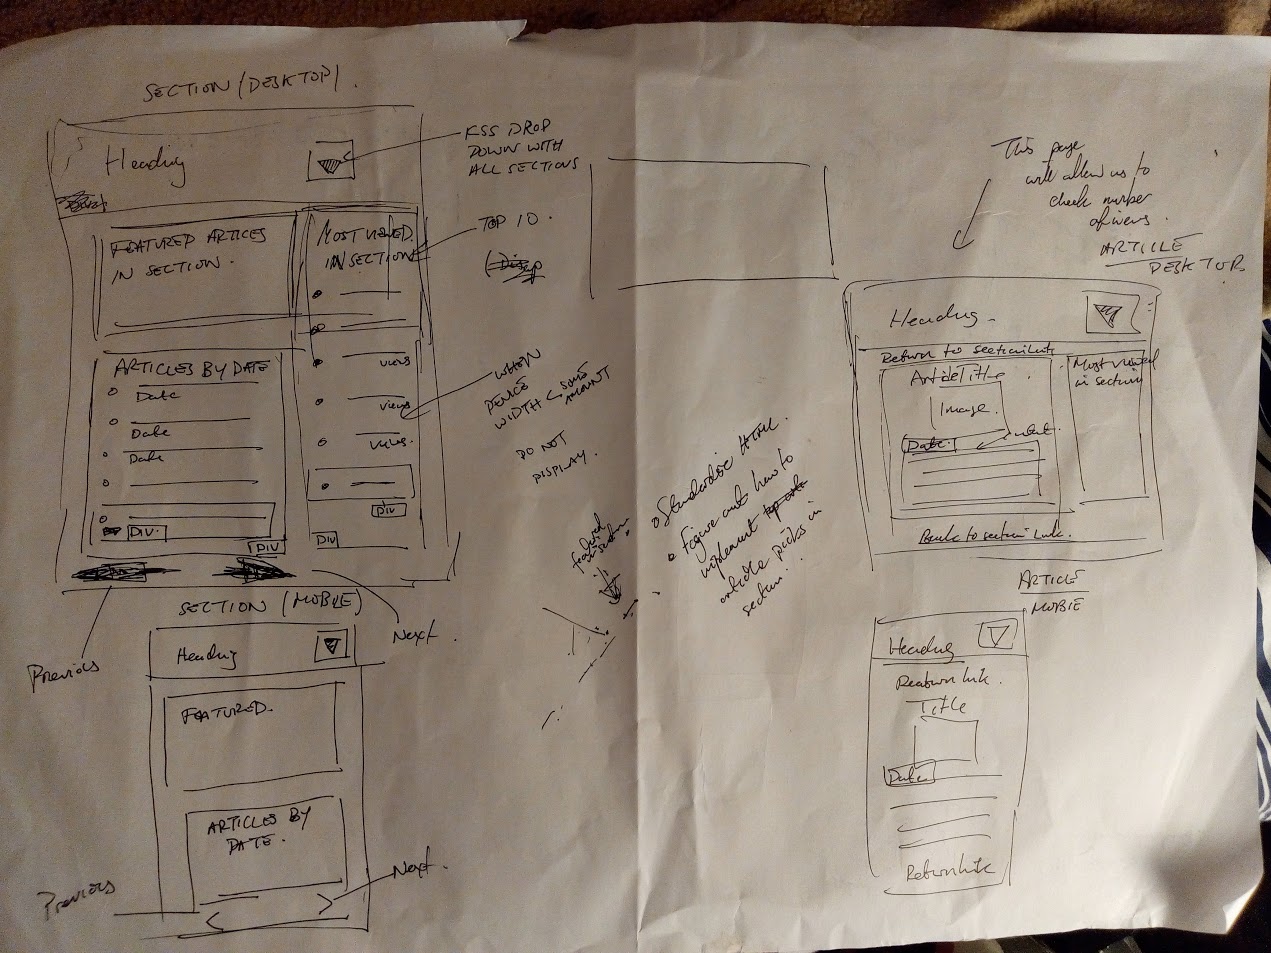 SECTION (DESKTOP).
Heading
KSS DROP
DOWN WITH
ALL SECTIONS
FEATURED ARTICES
IN SECTION.
MOST VIEWED
IN SECTION
TOP 10.
ARTICLES BY DATE
Date
Date
Date
views
views
views.
WHEN
DEVICE
WIDTH < SOME
AMOUNT
DO NOT
DISPLAY.
DIV
DIV
DIV
DIV
Previous
Next.
SECTION (MOBILE)
Heading
FEATURED.
ARTICLES BY
DATE.
Previous
Next.
Standardise HTML.
Figure out how to
implement
article picks in
section.
This page
will allow us to
check number
of views.
ARTICLE
DESKTOP
Heading.
Return to section link
Article Title
Image.
Date.
Most viewed
in section
Back to section link.
ARTICLE
MOBIE
Heading
Return link.
Title
Date
Return link